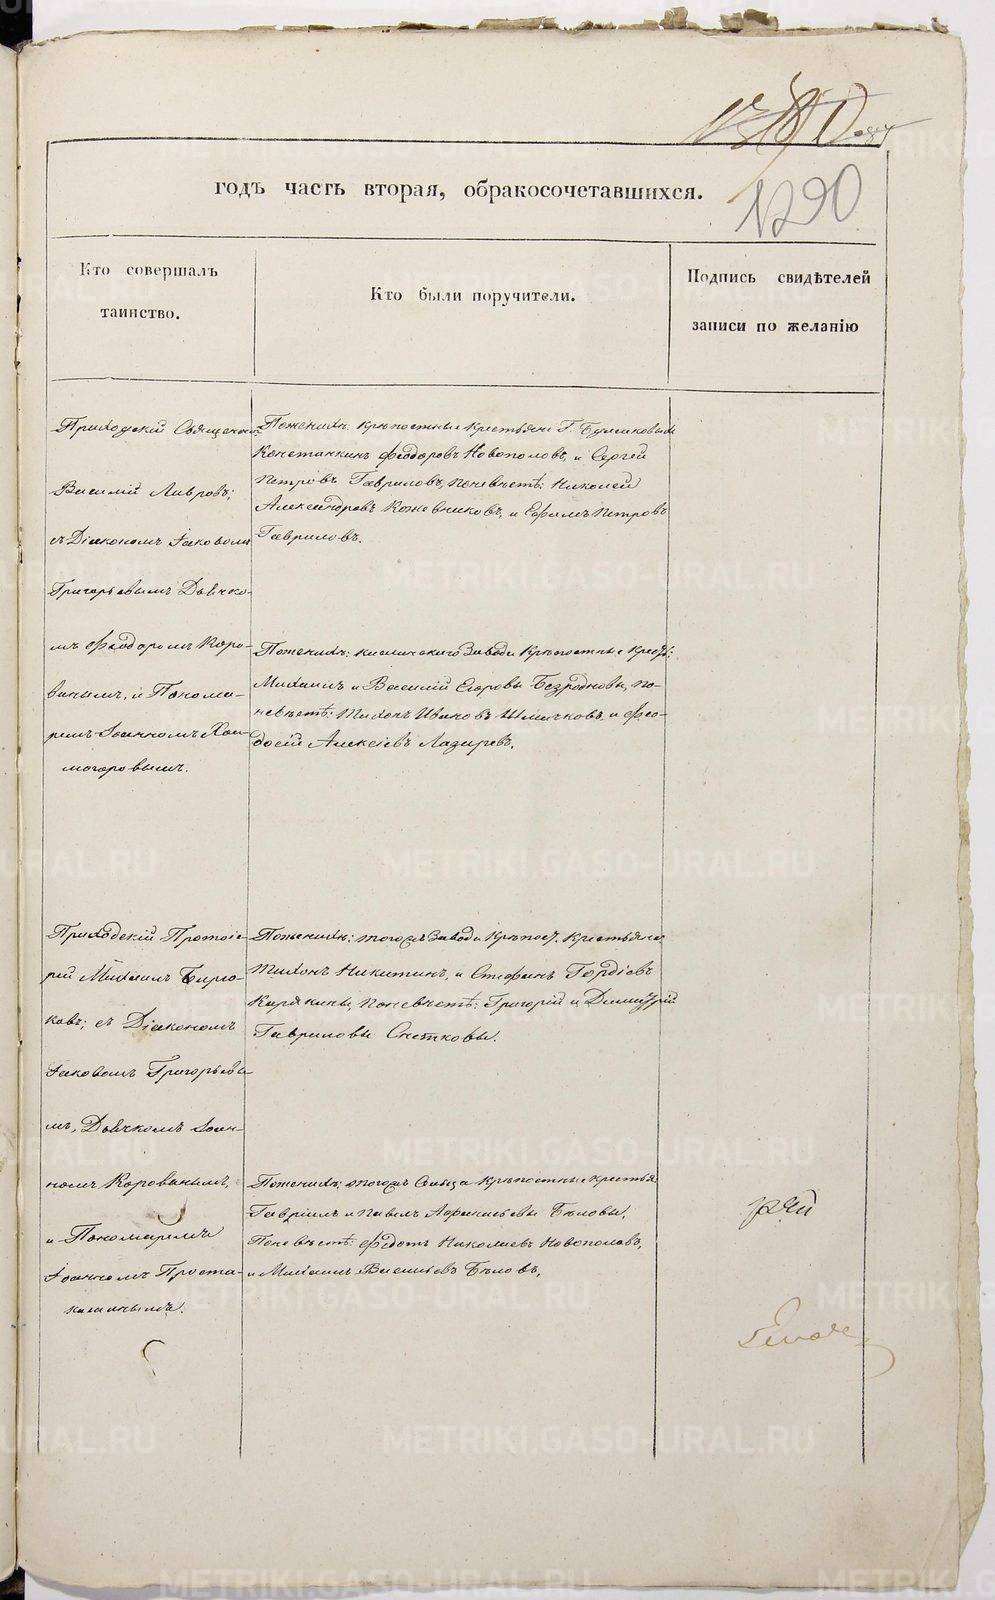 1290
годъ часть вторая, обракосочетавшихся.
Кто совершалъ
таинство.
Кто были поручители.
Подпись свидѣтелей
записи по желанію
Приходскій Священникъ
Василій Лавровъ;
съ Діакономъ Іаковомъ
Григорьевымъ Дьячко-
мъ Феодоромъ Коро-
винымъ, и Понома-
ремъ Іоанномъ Хол-
могоровымъ.
Поженихѣ: крѣпостные крестьяне Г.
Константинъ Феодоровъ Новополовъ, и Сергей
Петровъ Гавриловъ, поневѣстѣ: Николай
Александровъ Кожевниковъ, и Ефимъ Петровъ
Гавриловъ.
Поженихѣ: Завода Крѣпостные
Михаилъ и Василій Егоровы Безродновы, по-
невѣстѣ: Тихонъ Ивановъ и Фео-
досій Алексіевъ Лазаревъ.
Приходскій Протоіе-
рей Михаилъ Бирю-
ковъ; съ Діакономъ
Іаковомъ Григорьевы-
мъ, Дьячкомъ Іоан-
номъ Коровинымъ,
и Пономаремъ
Іоанномъ Проста-
кишинымъ.
Поженихѣ: тогожъ Завода Крѣпост. Крестьяне
Тихонъ Никитинъ, и Стефанъ Гордіевъ
Карякины, поневѣстѣ: Григорій и Димитрій
Гавриловы Снетковы.
Поженихѣ: тогожъ Сельца Крѣпостные крестья
Гавріилъ и Павелъ Афанасьевы Бѣловы,
Поневѣстѣ: Федотъ Николаевъ Новополовъ,
и Михаилъ Васильевъ Бѣловъ.
рей
METRIKI.GASO-URAL.RU